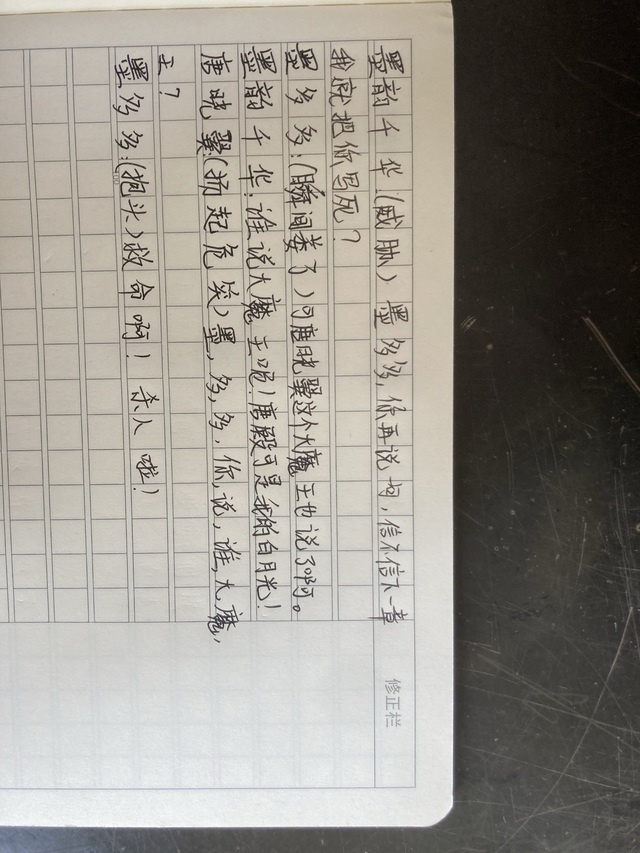 墨韵千华:(威胁)墨多多,你再说一句,信不信下一章
我就把你写死?
墨多多:(瞬间萎了)可唐晓翼这个大魔王也说了啊。
墨韵千华:谁说大魔王呢!唐殿可是我的白月光!
唐晓翼(扬起危笑)墨,多,多,你,说,谁,大,魔,
王?
墨多多:(抱头)救命啊!杀人啦!
修正栏